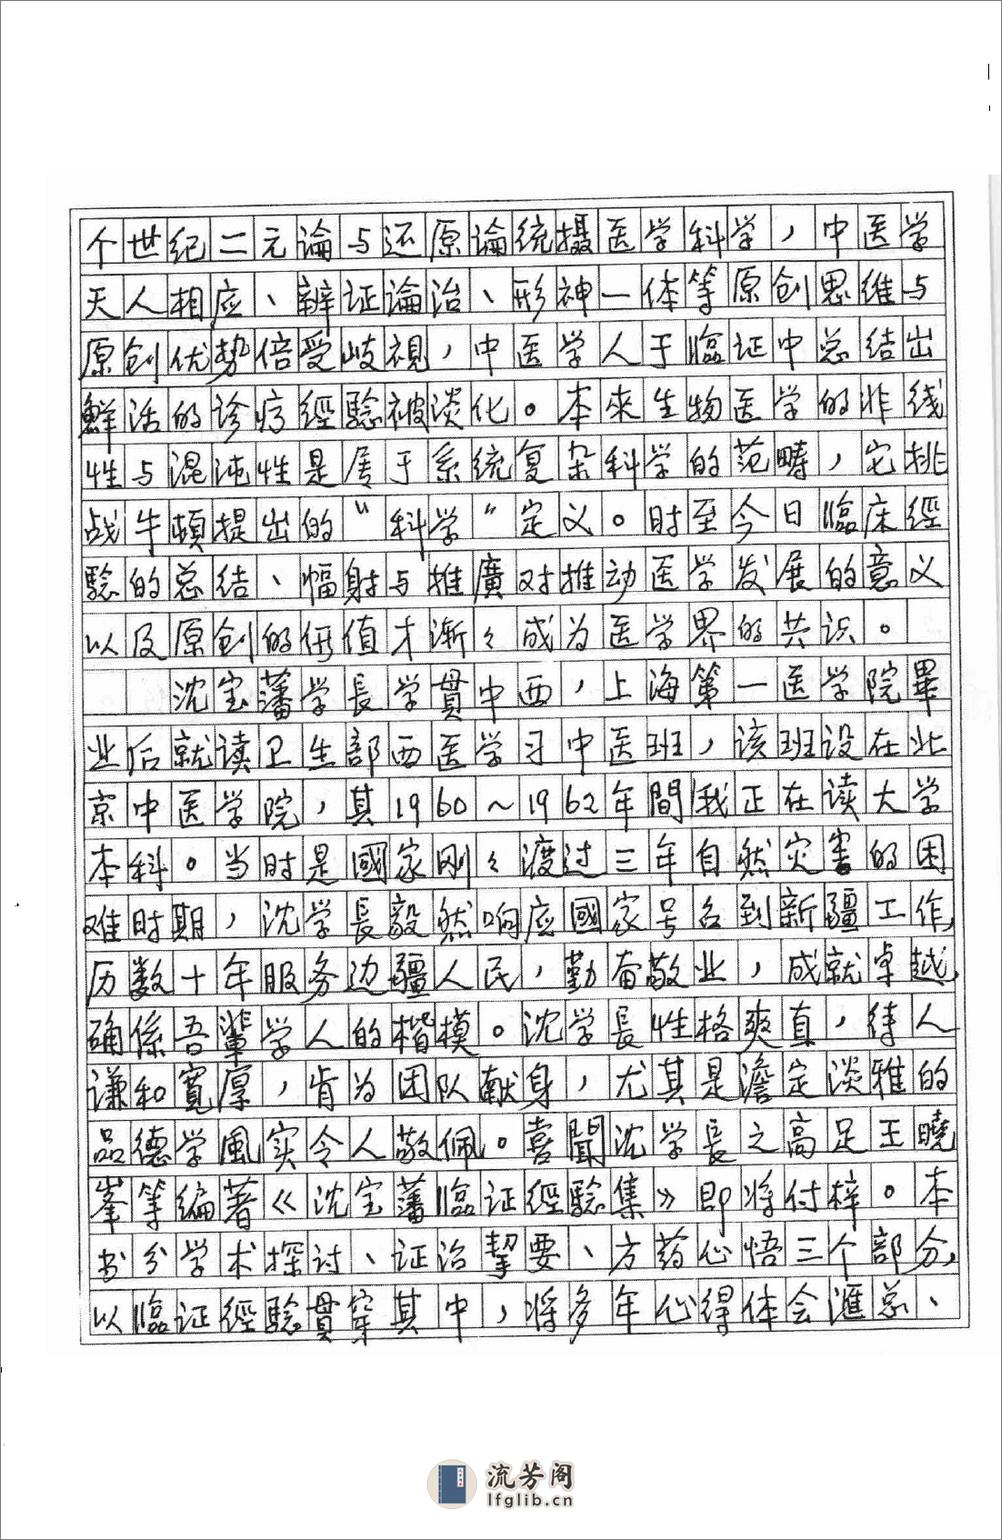 个世纪二元論与还原論统摄医学科学，中医学
天人相应、辨证論治、形神一体等原创思维与
原创优势倍受歧視，中医学人于臨证中总结出
鮮活的诊疗經驗被淡化。本來生物医学的非线
性与混沌性是属于系统复杂科学的范疇，它挑
战牛頓提出的“科学”定义。时至今日臨床經
驗的总结、幅射与推廣对推动医学发展的意义
以及原创的価值才漸々成为医学界的共识。
沈宝藩学長学貫中西，上海第一医学院畢
业后就读卫生部西医学习中医班，该班设在北
京中医学院，其1960～1962年間我正在读大学
本科。当时是國家刚々渡过三年自然灾害的困
难时期，沈学長毅然响应國家号召到新疆工作，
历数十年服务边疆人民，勤奋敬业，成就卓越，
确係吾輩学人的楷模。沈学長性格爽直，待人
谦和寬厚，肯为团队献身，尤其是澹定淡雅的
品德学風实令人敬佩。喜聞沈学長之高足王曉
峯等编著《沈宝藩臨证經驗集》即将付梓。本
书分学术探讨、证治挈要、方药心悟三个部分，
以臨证經驗貫穿其中，将多年心得体会滙总、
流芳阁
lfglib.cn